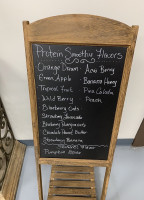 Protein Smoothie Flavors
Orange Dream - Acai Berry
Green Apple - Banana Honey
Tropical Fruit - Pina Colada
Wild Berry - Peach
Blueberry Oats
Strawberry Avocado
Blueberry Pomegranate
Chocolate Peanut Butter
Strawberry Banana
Pumpkin Spice